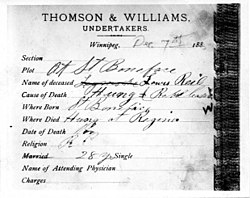 THOMSON & WILLIAMS,
UNDERTAKERS.
Winnipeg, Dec 7th 188
Section
Plot At St Boniface
Name of deceased Louis Reil
Cause of Death Hung Rebel
Where Born St Boniface
Where Died Hung at Regina
Date of Death Nov
Religion R C
Married 28 Single
Name of Attending Physician
Charges